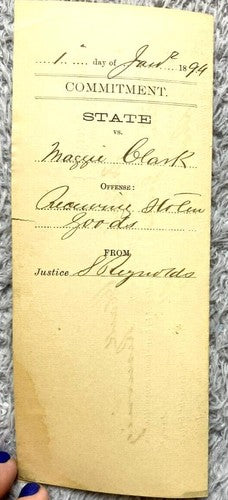 1 day of Jan'y 1894
COMMITMENT.
STATE
vs.
Maggie Clark
OFFENSE:
Receiving Stolen
goods
FROM
Justice S Reynolds